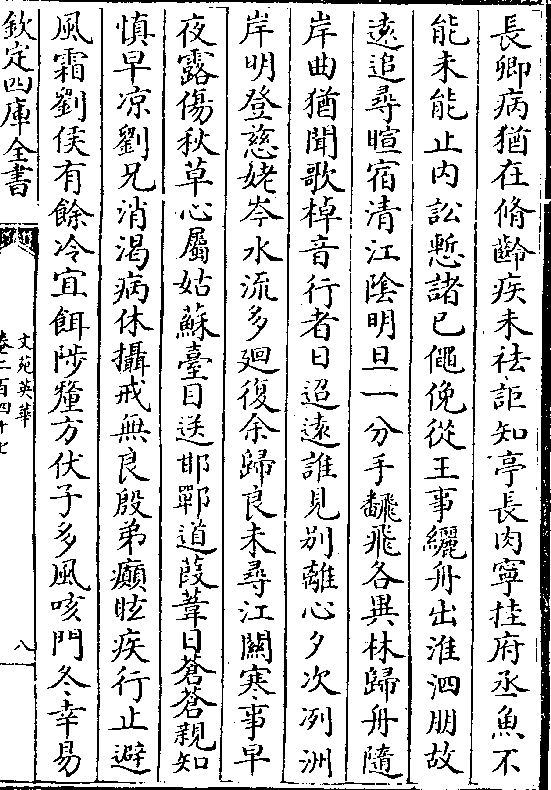 長卿病猶在脩齡疾未祛詎知亭長肉寧挂府丞魚不
能未能止内訟慙諸已僶俛從王事纚舟出淮泗朋故
遠追尋暄宿清江陰明旦一分手翻飛各異林歸舟隨
岸曲猶聞歌棹音行者日迢遠誰見别離心夕次洌洲
岸明登慈姥岑水流多廻復余歸良未尋江關寒事早
夜露傷秋草心屬姑蘇臺目送邯鄲道葭葦日蒼蒼親知
慎早凉劉兄消渴病休攝戒無良殷弟癲眩疾行止避
風霜劉侯有餘冷宜餌陟釐方伏子多風咳門冬幸易
欽定四庫全書
文苑英華
卷二百四十七
八